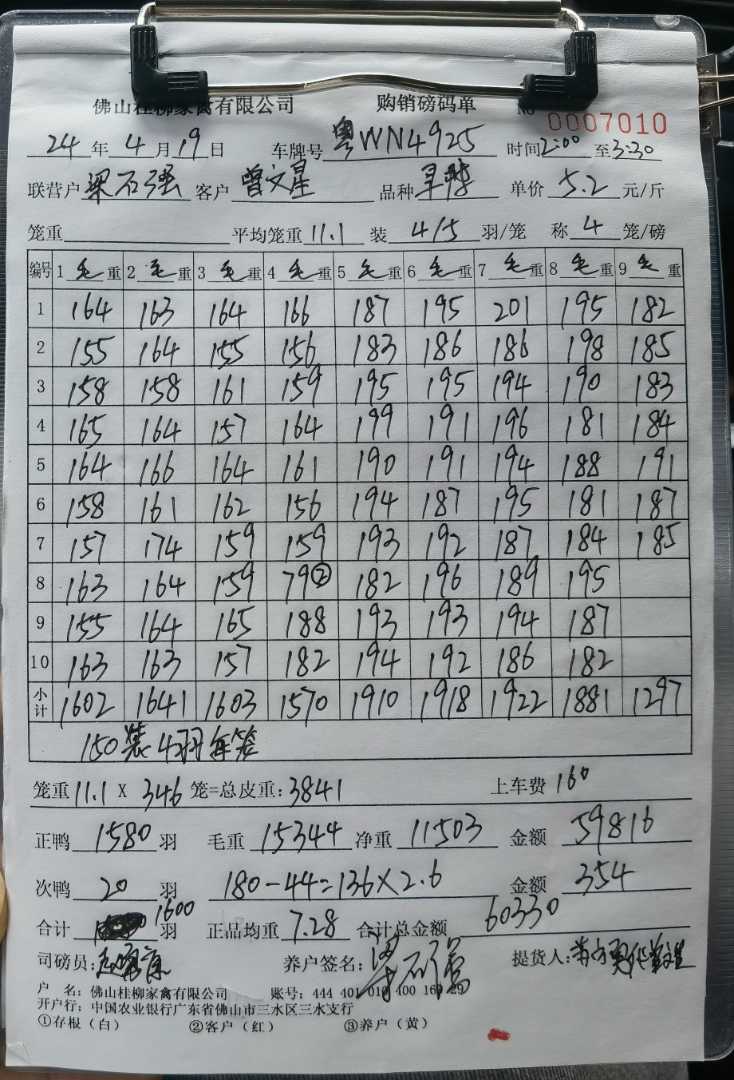 佛山桂柳家禽有限公司 购销磅码单 No 0007010
24 年 4 月 19 日 车牌号 粤WN4925 时间 2:00 至 3:30
联营户 梁石强 客户 曾文星 品种 单价 5.2 元/斤
笼重 平均笼重 11.1 装 4/5 羽/笼 称 4 笼/磅
编号 1 毛 重 2 毛 重 3 毛 重 4 毛 重 5 毛 重 6 毛 重 7 毛 重 8 毛 重 9 毛 重
1 164 163 164 166 187 195 201 195 182
2 155 164 155 156 183 186 186 198 185
3 158 158 161 159 195 195 194 190 183
4 165 164 157 164 199 191 196 181 184
5 164 166 164 161 190 191 194 188 191
6 158 161 162 156 194 187 195 181 187
7 157 174 159 159 193 192 187 184 185
8 163 164 159 79② 182 196 189 195
9 155 164 165 188 193 193 194 187
10 163 163 157 182 194 192 186 182
小计 1602 1641 1603 1570 1910 1918 1922 1881 1297
150装4羽每笼
笼重 11.1 X 346 笼=总皮重: 3841 上车费 160
正鸭 1580 羽 毛重 15344 净重 11503 金额 59816
次鸭 20 羽 180-44=136×2.6 金额 354
合计 1600 羽 正品均重 7.28 合计总金额 60330
司磅员: 养户签名: 梁石强 提货人:
户 名: 佛山桂柳家禽有限公司 账号: 444 401 010 400 169 29
开户行: 中国农业银行广东省佛山市三水区三水支行
①存根（白） ②客户（红） ③养户（黄）